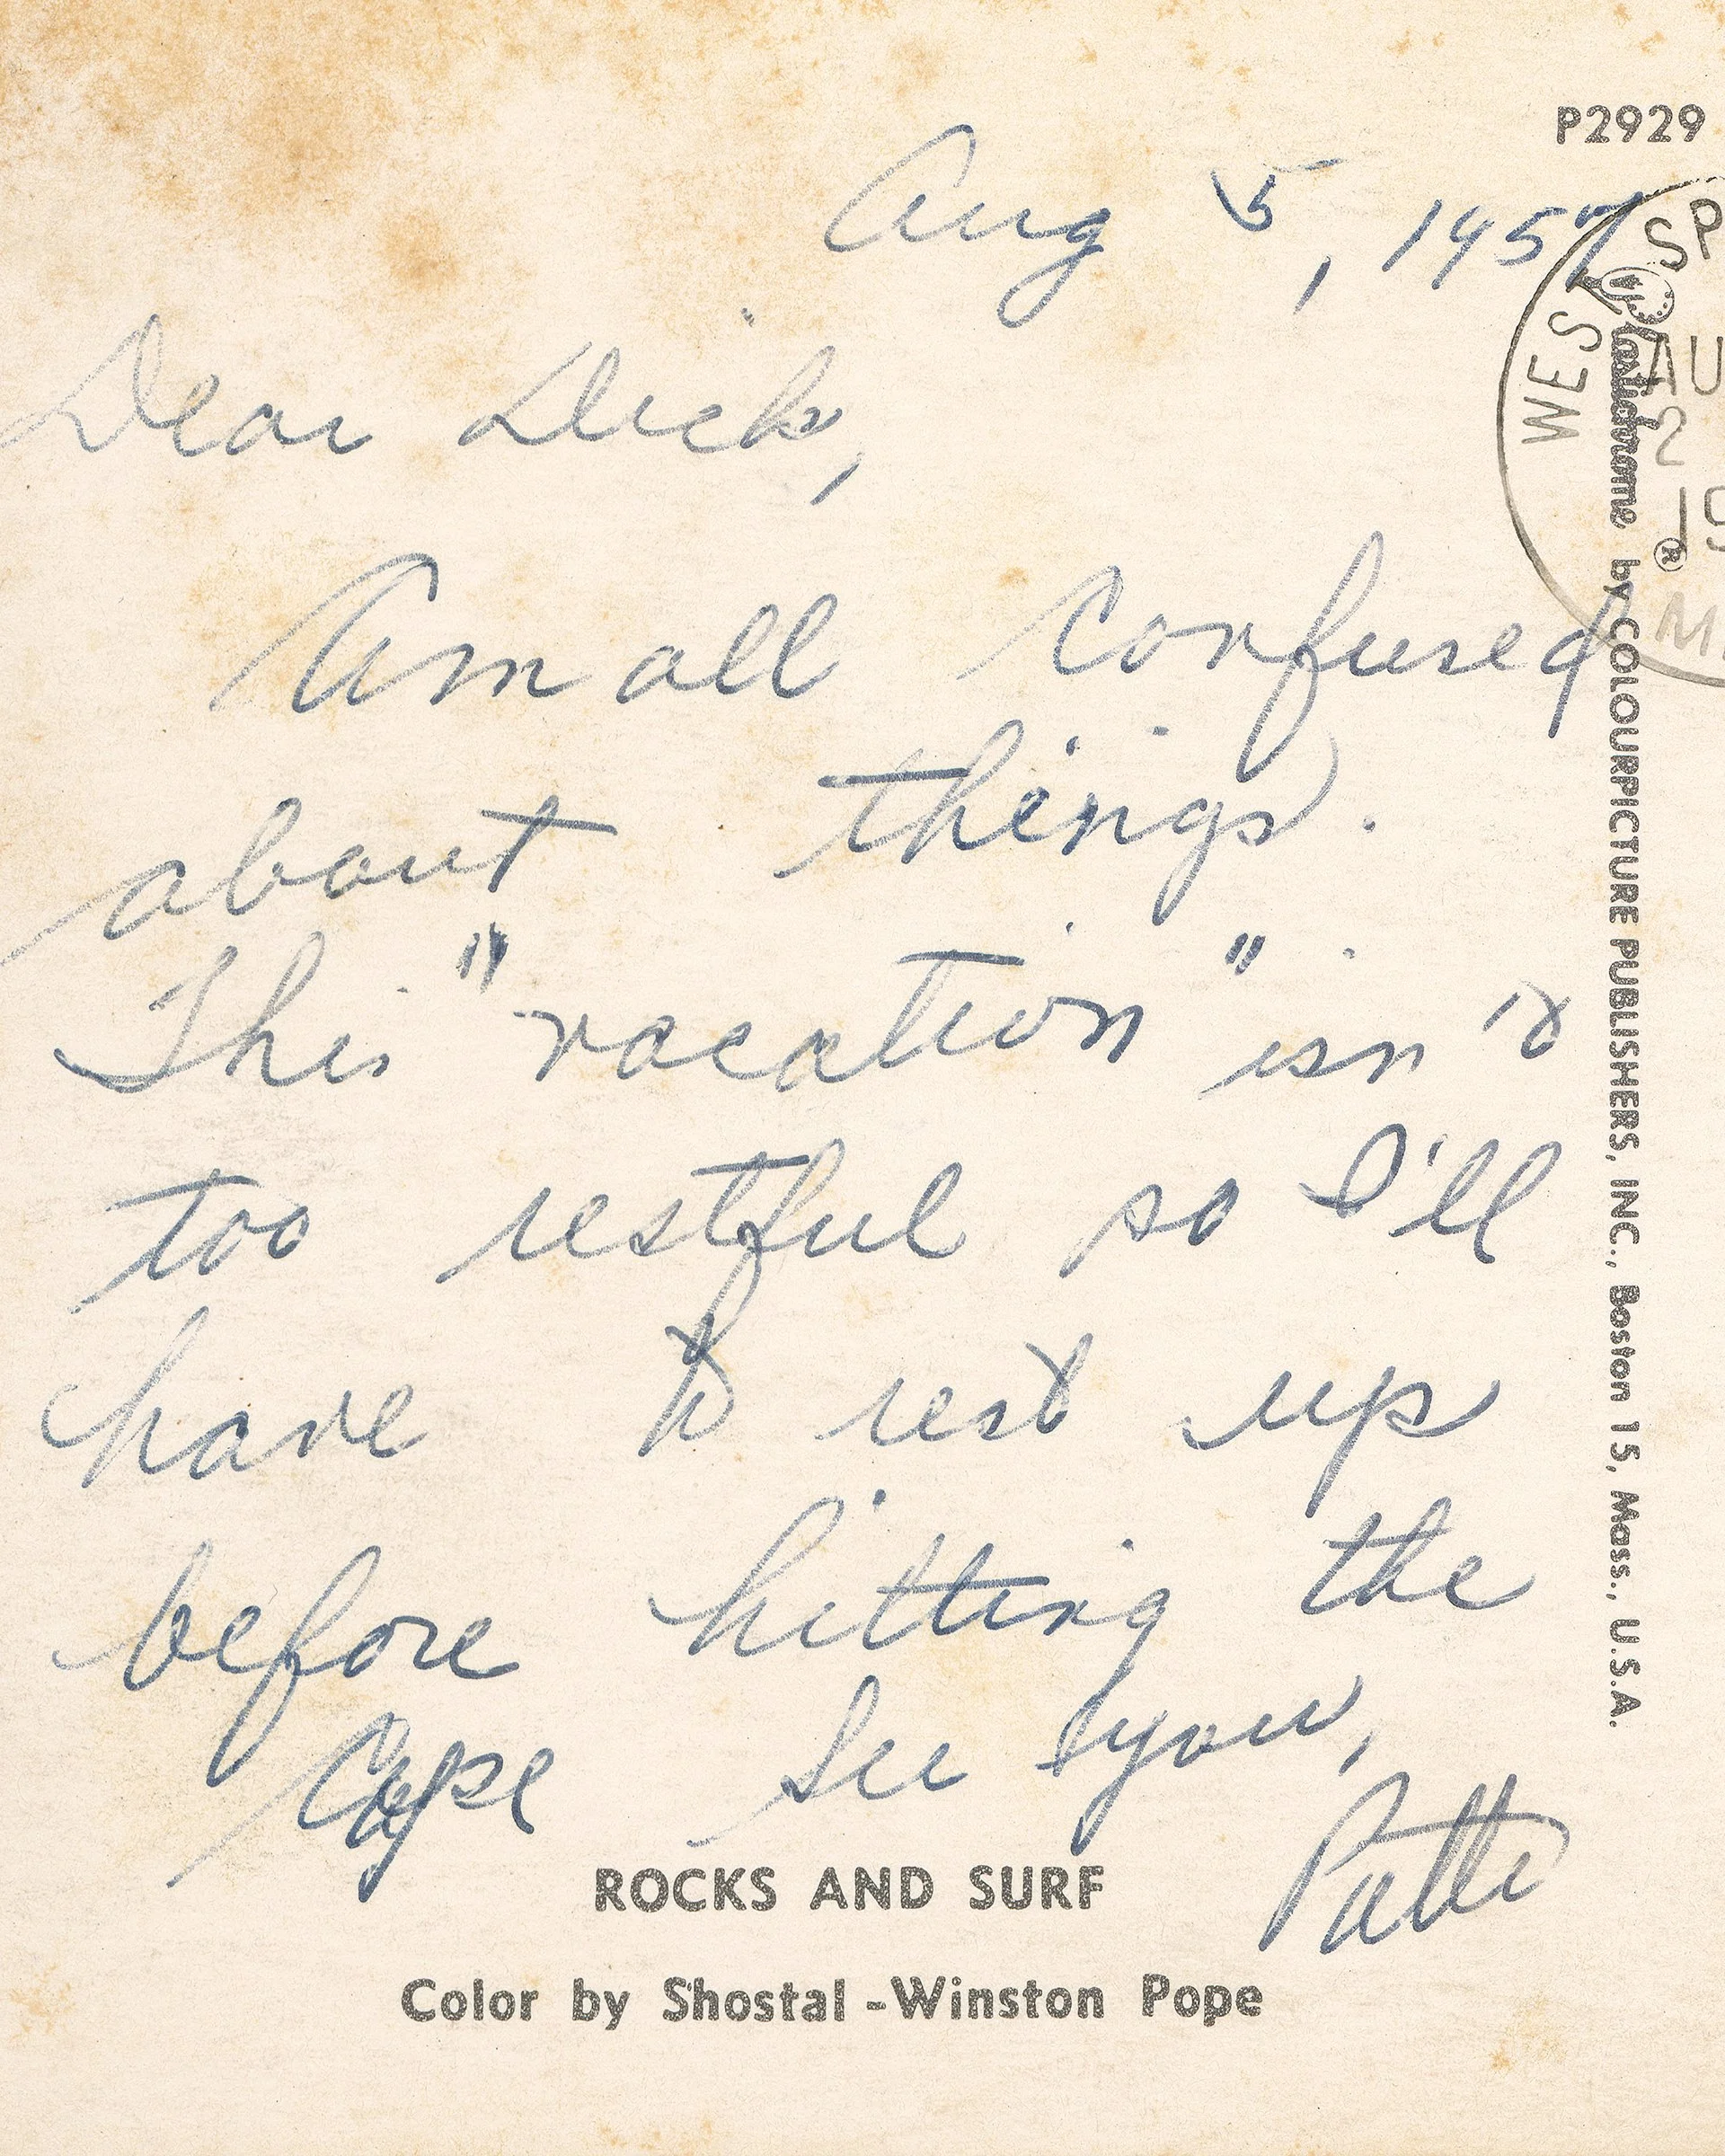 P2929
Aug 5, 1957
Dear Dick,
Am all confused
about things.
This "vacation" isn't
too restful so I'll
have to rest up
before hitting the
Cape See you,
Patti
ROCKS AND SURF
Color by Shostal-Winston Pope
Plastichrome ® by COLOURPICTURE PUBLISHERS, INC., Boston 15, Mass., U.S.A.
WEST SP
AU
2
19
M